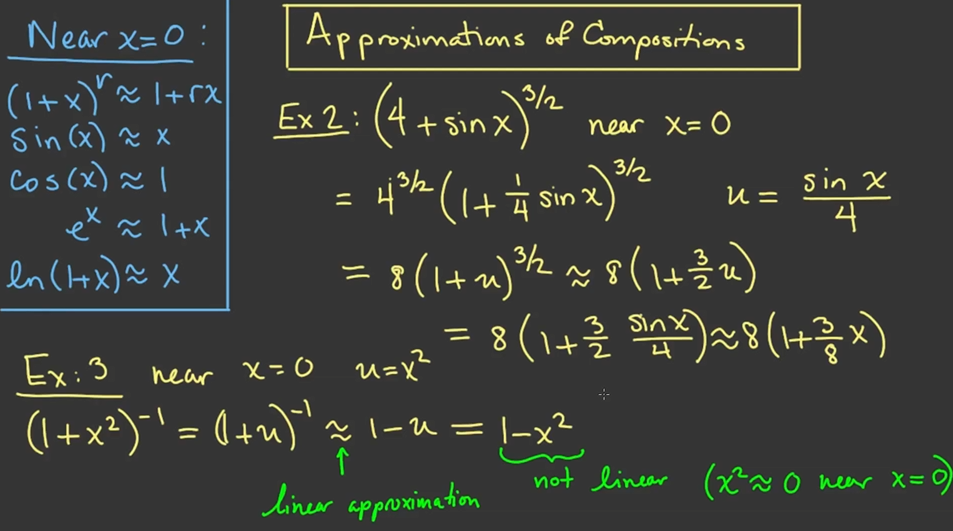 Near x=0:
(1+x)^r ≈ 1+rx
sin(x) ≈ x
cos(x) ≈ 1
e^x ≈ 1+x
ln(1+x) ≈ x
Approximations of Compositions
Ex 2: (4 + sin x)^{3/2} near x=0
= 4^{3/2} (1 + 1/4 sin x)^{3/2} u = sin x / 4
= 8 (1+u)^{3/2} ≈ 8 (1 + 3/2 u)
= 8 (1 + 3/2 sin x / 4) ≈ 8 (1 + 3/8 x)
Ex: 3 near x=0 u=x^2
(1+x^2)^{-1} = (1+u)^{-1} ≈ 1-u = 1-x^2
↑ not linear (x^2 ≈ 0 near x=0)
linear approximation